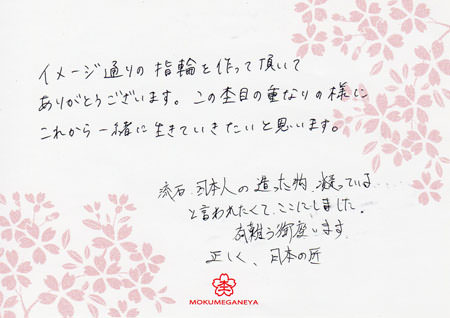 イメージ通りの指輪を作って頂いて
ありがとうございます。この杢目の重なりの様に
これから一緒に生きていきたいと思います。
流石、日本人の造った物、凝っている....
と言われたくて、ここにしました。
有難う御座います
正しく、日本の匠
杢
MOKUMEGANEYA